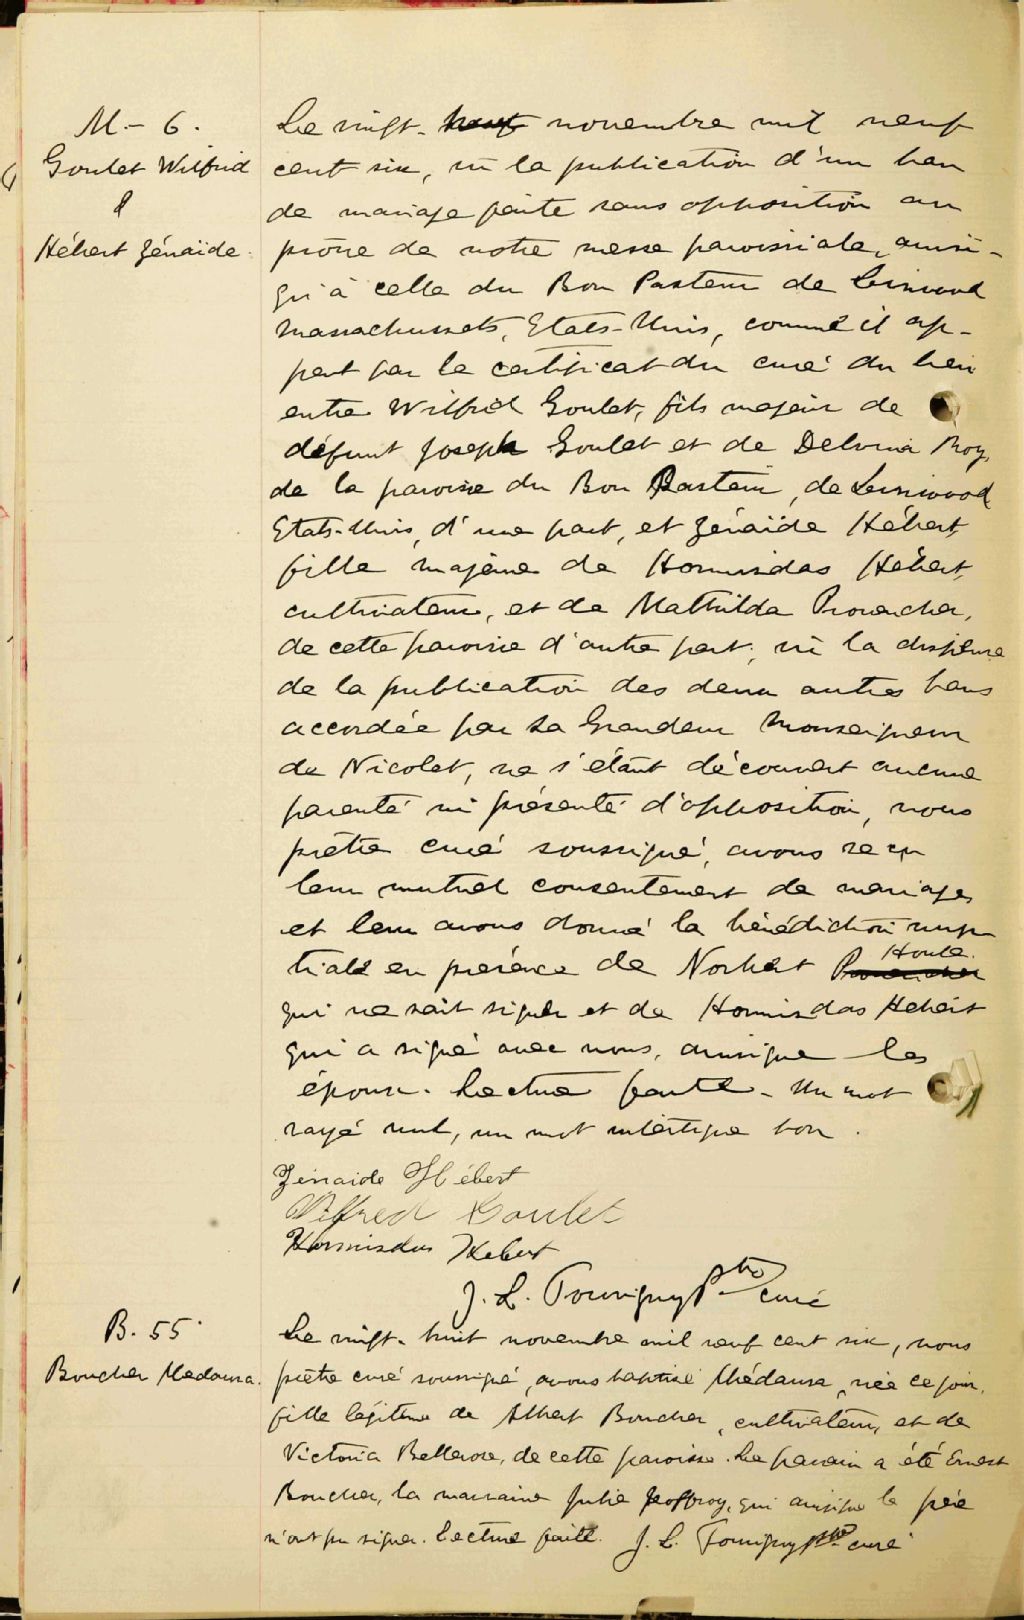 M.- 6.
Goulet Wilfrid
&
Hébert Zénaïde.
Le vingt-neuf novembre mil neuf
cent six, vu la publication d'un ban
de mariage faite sans opposition au
prône de notre messe paroissiale, ainsi-
qu'à celle du Bon Pasteur de Linwood
Massachussets, Etats-Unis, comme il ap-
pert par le certificat du curé du lieu
entre Wilfrid Goulet, fils majeur de
défunt Joseph Goulet et de Delvina Roy,
de la paroisse du Bon Pasteur, de Linwood
Etats-Unis, d'une part, et Zénaïde Hébert,
fille majeure de Hormisdas Hébert,
cultivateur, et de Mathilda Provencher,
de cette paroisse d'autre part; vu la dispense
de la publication des deux autres bans
accordée par Sa Grandeur Monseigneur
de Nicolet, ne s'étant découvert aucune
parenté ni présenté d'opposition, nous
prêtre curé soussigné, avons reçu
leur mutuel consentement de mariage,
et leur avons donné la bénédiction nup
tiale en présence de Norbert Provencher Houle.
qui ne sait signer et de Hormisdas Hébert
qui a signé avec nous, ainsique les
époux. Lecture faite. Un mot
rayé nul, un mot interligne bon.
Zénaide Hébert
Wilfred Goulet
Hormisdas Hebert
J. L. Tourigny Ptre curé
B. 55
Boucher Medaura.
Le vingt-huit novembre mil neuf cent six, nous
prêtre curé soussigné, avons baptisé Médaura, née ce jour,
fille légitime de Albert Boucher, cultivateur, et de
Victoria Bellerose, de cette paroisse. Le parrain a été Ernest
Boucher, la marraine Julie Jeoffroy, qui ainsique le père
n'ont pu signer. Lecture faite. J. L. Tourigny Ptre curé